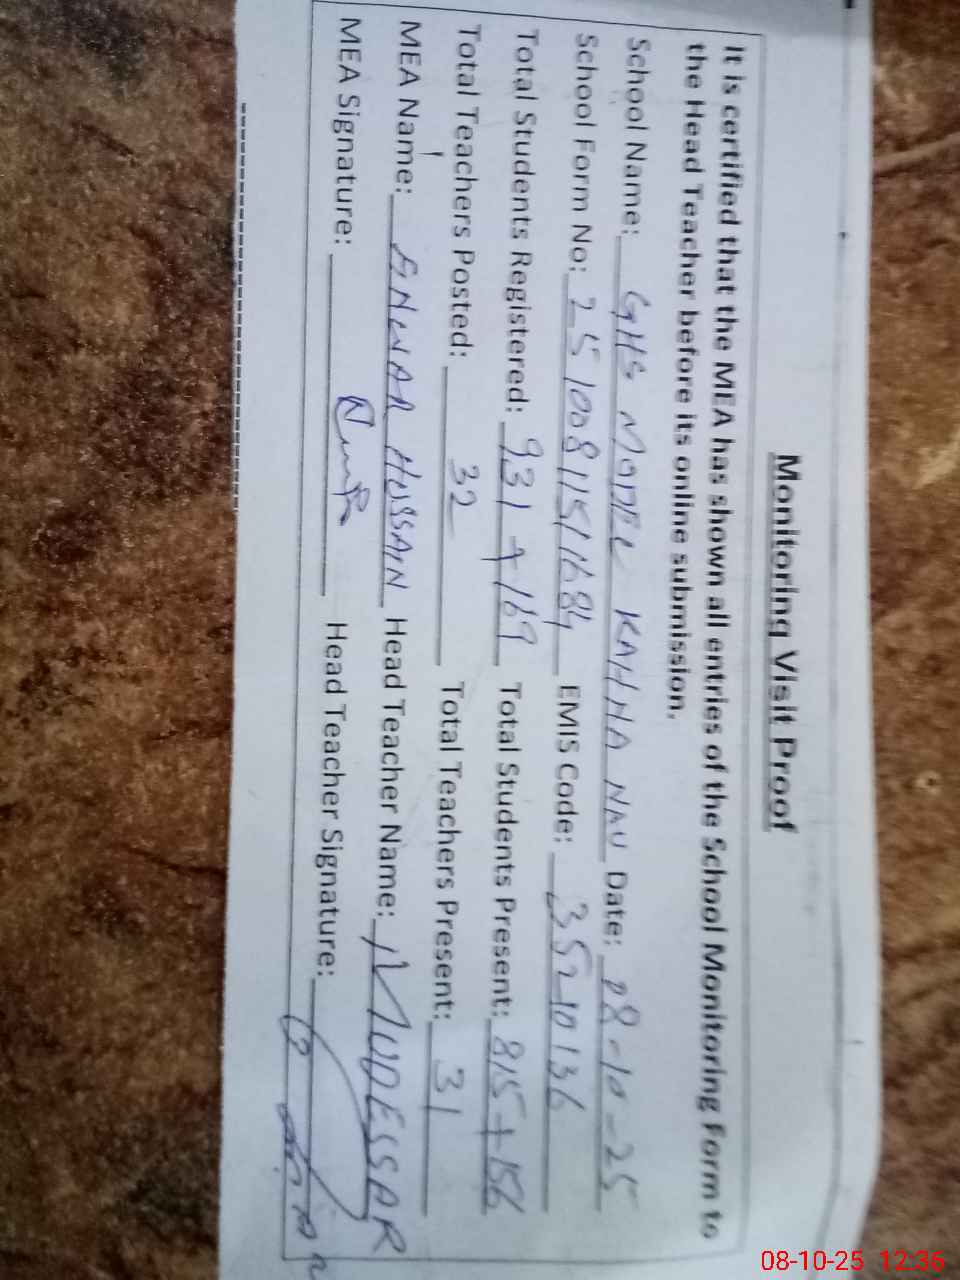 Monitoring Visit Proof
It is certified that the MEA has shown all entries of the School Monitoring Form to
the Head Teacher before its online submission.
School Name: GHS MODEL KAHNA NAU Date: 08-10-25
School Form No: 25100811511684 EMIS Code: 35210136
Total Students Registered: 931+169 Total Students Present: 815+156
Total Teachers Posted: 32 Total Teachers Present: 31
MEA Name: ANWAR HUSSAIN Head Teacher Name: MUDESSAR
MEA Signature: Head Teacher Signature:
08-10-25 12:36